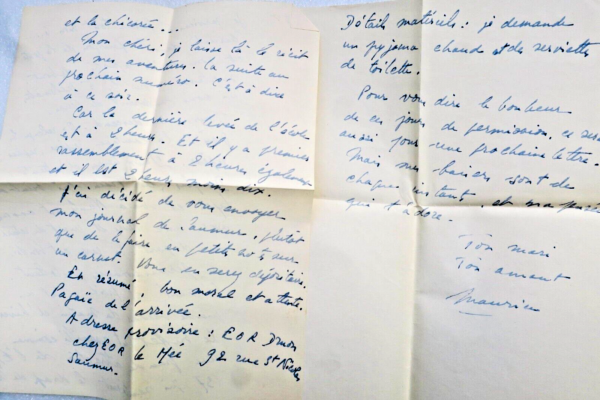 et la chicorée...
Mon chéri, je laisse là le récit
de mes aventures. La suite au
prochain numéro. C'est à dire
à ce soir.
Car la dernière levée de l'école
est à 2 heures. Et il y a premier
rassemblement à 2 heures également
et il est 2 heures moins dix.
J'ai décidé de vous envoyer
mon journal de Saumur, plutôt
que de le faire en petits mots sur
un carnet. Vous en serez dépositaire.
En résumé bon moral et attente.
Pagaïe de l'arrivée.
Adresse provisoire : EOR Druon
chez EOR le Hée 92 rue St Nicolas
Saumur.
Détails matériels : je demande
un pyjama chaud et des serviettes
de toilette.
Pour vous dire le bonheur
de ces jours de permission, ce sera
aussi pour une prochaine lettre.
Mais mes baisers sont de
chaque instant et ma
qui t'adore.
Ton mari
Ton amant
Maurice